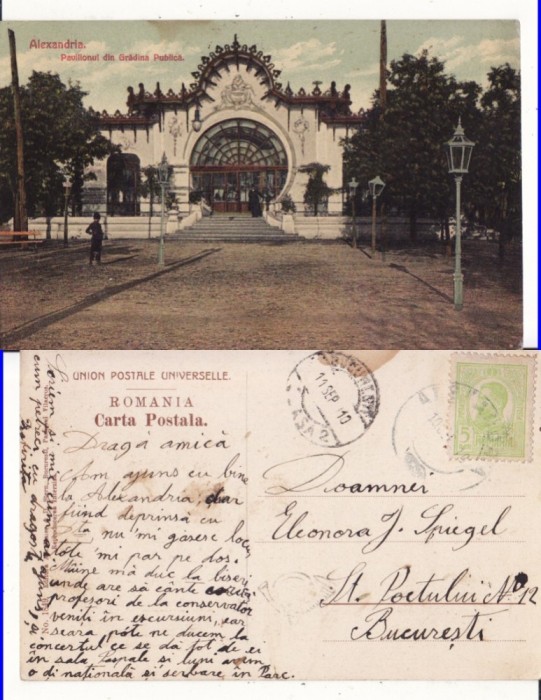 Alexandria.
Pavilionul din Grădina Publică.
UNION POSTALE UNIVERSELLE.
ROMANIA
Carta Postala.
11 SEP 10
5
Dragă amică
Am ajuns cu bine
la Alexandria, dar
fiind deprinsă cu
nu 'mi găsesc loc,
tote 'mi par pe dos.
Mâine mă duc la biserică
unde are să cânte
profesori de la conservator
veniți în escursiuni, iar
seara póte ne ducem la
concertul ce se dă tot de ei
în sala și luni avem
o di națională și serbare în Parc.
Doamner
Eleonora J. Spiegel
St. Poetului No 12
București
cum petreci cu dragoste